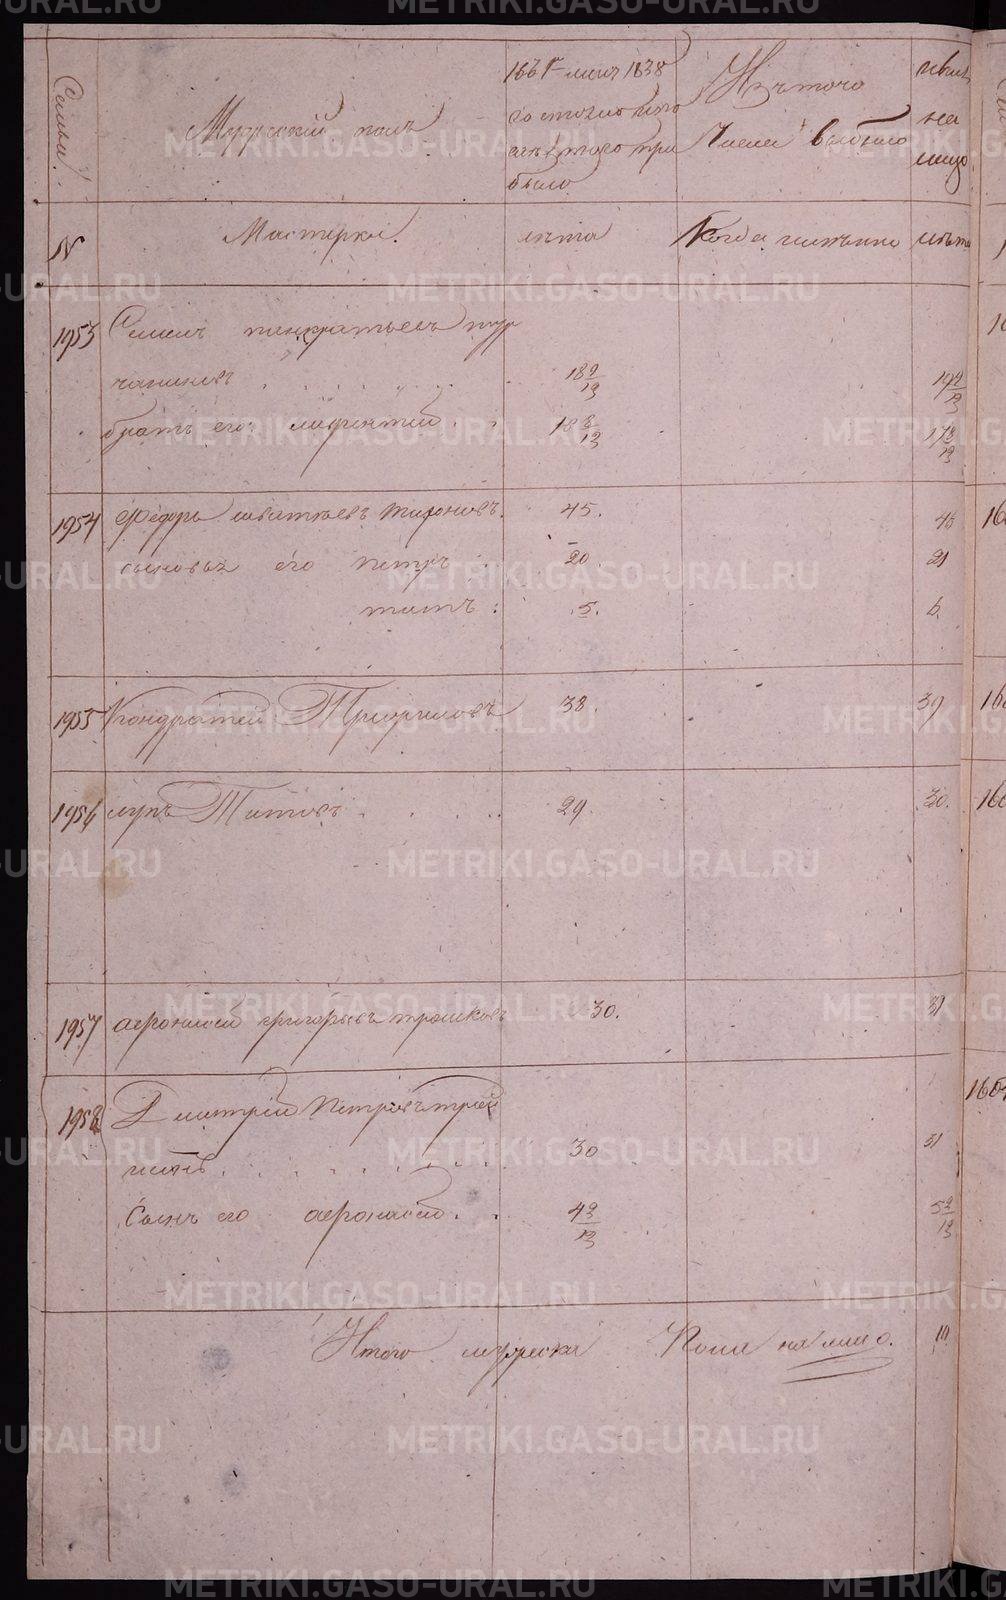 METRIKI.GASO-URAL.RU
Семьи.
Мужескій полъ
1838
состояло
того при
было
Изъ того
Числа выбыло
нынѣ
на
лицо
N
Мастерки.
лѣта
Когда именно
лѣта
1953
Семенъ панкратьевъ тур
чаниновъ . . . . . .
18 9/12
19 9/12
братъ его лаврентей . .
16 8/12
17 8/12
1954
Федоръ игнатьевъ тихоновъ.
45.
46
сыновья его петръ . .
20
21
титъ :
5.
6.
1955
Кондратей Трифиловъ
38.
39
1956
лупъ Титовъ . . . . .
29.
30.
1957
афонасей григорьевъ трошковъ
30.
31
1958
Дмитрий Петровъ трей
чинъ . . . . . . .
30
31
Сынъ его афонасей . .
4 9/12
5 9/12
Итого мужеска Пола на лицо.
10